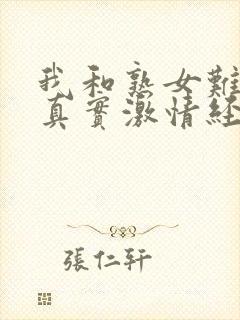 我和熟女難
真實激情經
張仁軒